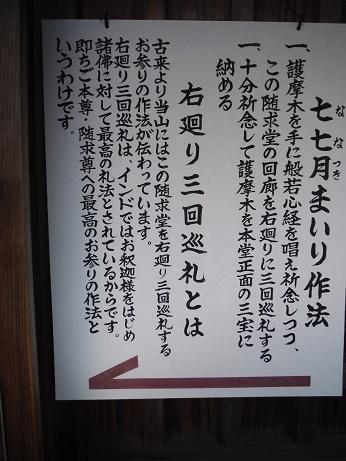 七七月まいり作法
な な つき
一、護摩木を手に般若心経を唱え祈念しつつ、
この随求堂の回廊を右廻りに三回巡礼する
一、十分祈念して護摩木を本堂正面の三宝に
納める
右廻り三回巡礼とは
古来より当山にはこの随求堂を右廻り三回巡礼する
お参りの作法が伝わっています。
右廻り三回巡礼は、インドではお釈迦様をはじめ
諸佛に対して最高の礼法とされているからです。
即ちご本尊・随求尊への最高のお参りの作法と
いうわけです。